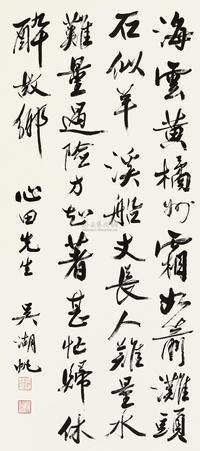 海雲黃橘州霜如箭灘頭
石似羊溪船丈長人難量水
難量過險方知著甚忙歸休
醉故鄉 心田先生 吳湖帆